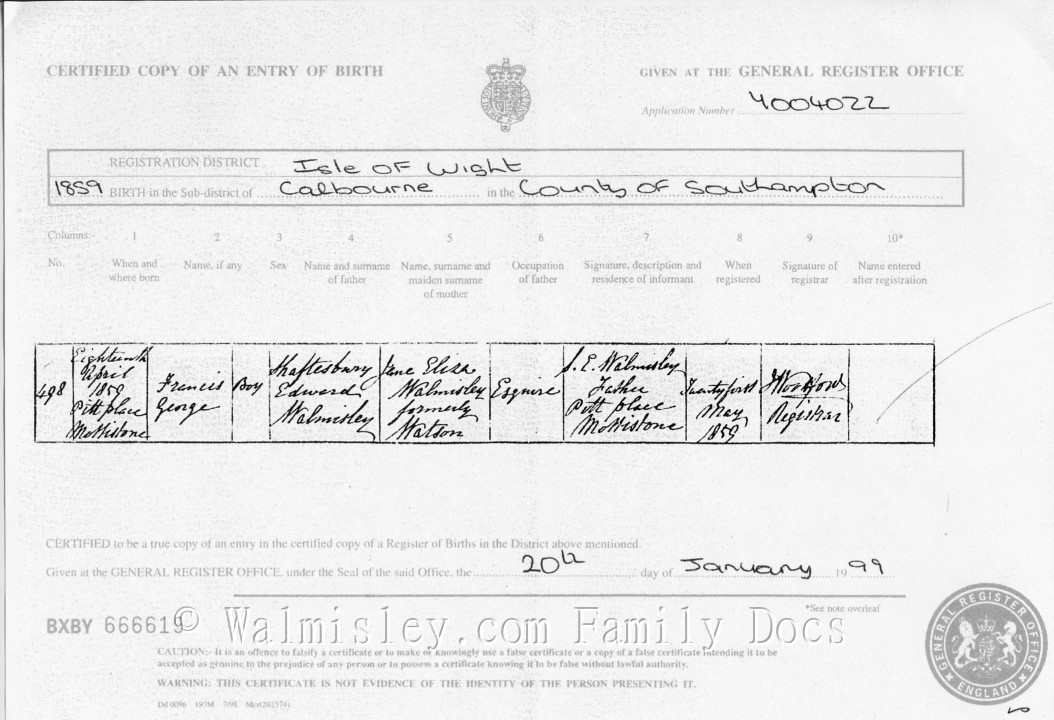 CERTIFIED COPY OF AN ENTRY OF BIRTH
GIVEN AT THE GENERAL REGISTER OFFICE
Application Number 4004022
REGISTRATION DISTRICT Isle Of Wight
1859 BIRTH in the Sub-district of Calbourne in the County of Southampton
Columns:- 1 2 3 4 5 6 7 8 9 10*
No. When and where born Name, if any Sex Name and surname of father Name, surname and maiden surname of mother Occupation of father Signature, description and residence of informant When registered Signature of registrar Name entered after registration
498
Eighteenth
April
1859
Pitt place
Mottistone
Francis
George
Boy
Shaftesbury
Edward
Walmisley
Jane Eliza
Walmisley
formerly
Watson
Esquire
S. E. Walmisley
Father
Pitt place
Mottistone
Twenty first
May
1859
Registrar
CERTIFIED to be a true copy of an entry in the certified copy of a Register of Births in the District above mentioned.
Given at the GENERAL REGISTER OFFICE, under the Seal of the said Office, the 20th day of January 19 99
*See note overleaf
BXBY 666619
© Walmisley.com Family Docs
CAUTION:- It is an offence to falsify a certificate or to make or knowingly use a false certificate or a copy of a false certificate intending it to be
accepted as genuine to the prejudice of any person or to possess a certificate knowing it to be false without lawful authority.
WARNING: THIS CERTIFICATE IS NOT EVIDENCE OF THE IDENTITY OF THE PERSON PRESENTING IT.
Dd 0096 197M 7/98 Mcr(203574)
GENERAL REGISTER OFFICE
ENGLAND